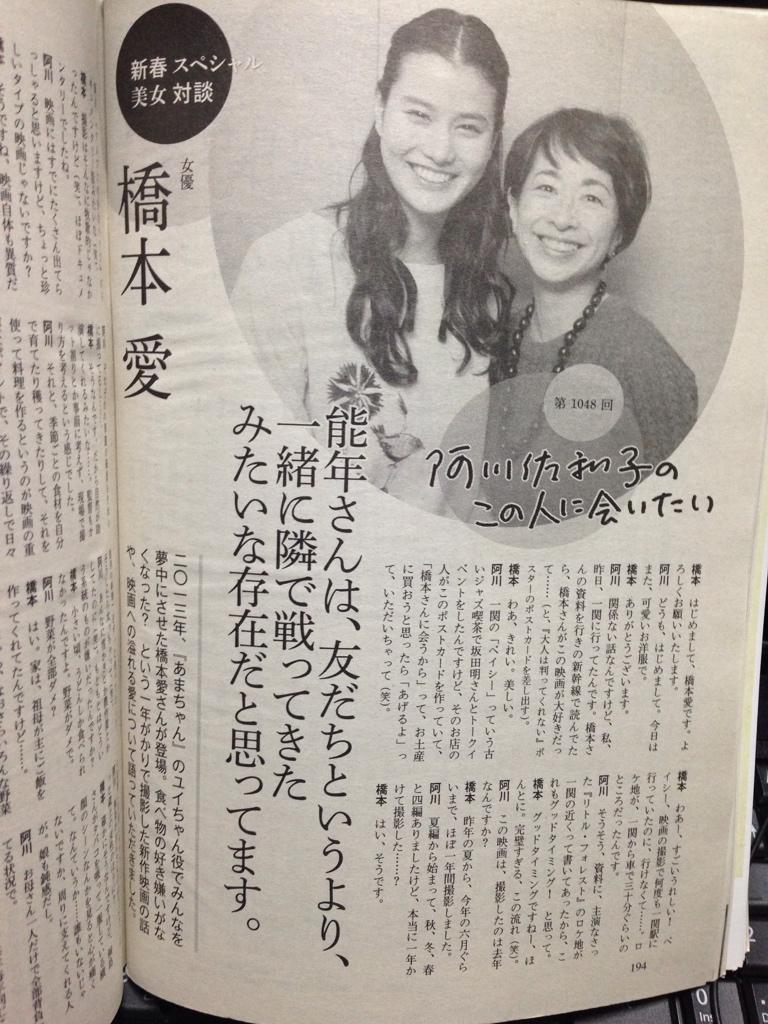 新春 スペシャル
美女 対談
女優
橋本 愛
第1048回
阿川佐和子の
この人に会いたい
能年さんは、友だちというより、
一緒に隣で戦ってきた
みたいな存在だと思ってます。
二〇一三年、『あまちゃん』のユイちゃん役でみんなを
夢中にさせた橋本愛さんが登場。食べ物の好き嫌いがな
くなった? という一年がかりで撮影した新作映画の話
や、映画への溢れる愛について語っていただきました。
橋本 はじめまして、橋本愛です。よ
ろしくお願いいたします。
阿川 どうも、はじめまして。今日は
また、可愛いお洋服で。
橋本 ありがとうございます。
阿川 関係ない話なんですけど、私、
昨日、一関に行ってたんです。橋本さ
んの資料を行きの新幹線で読んでた
ら、橋本さんがこの映画が大好きだっ
て……(と、『大人は判ってくれない』ポ
スターのポストカードを差し出す)。
橋本 わあ、きれい。美しい。
阿川 一関の「ベイシー」っていう古
いジャズ喫茶で坂田明さんとトークイ
ベントをしたんですけど、そのお店の
人がこのポストカードを作っていて、
「橋本さんに会うから」って、お土産
に買おうと思ったら「あげるよ」っ
て、いただいちゃって(笑)。
橋本 わあー、すごいうれしい! ベ
イシー、映画の撮影で何度も一関駅に
行っていたのに、行けなくて……。ロ
ケ地が、一関から車で三十分ぐらいの
ところだったんです。
阿川 そうそう、資料に、主演なさっ
た『リトル・フォレスト』のロケ地が
一関の近くって書いてあったから、こ
れもグッドタイミング! と思って。
橋本 グッドタイミングですねー、ほ
んとに。完璧すぎる、この流れ(笑)。
阿川 この映画は、撮影したのは去年
なんですか?
橋本 昨年の夏から、今年の六月ぐら
いまで、ほぼ一年間撮影しました。
阿川 夏編から始まって、秋、冬、春
と四編ありましたけど、本当に一年か
けて撮影した……?
橋本 はい、そうです。
194
ったんですけど(笑)、ほぼドキュメ
ンタリーでしたね。
阿川 映画にはすでにたくさん出てら
っしゃると思いますけど、ちょっと珍
しいタイプの映画じゃないですか?
橋本 そうですね、映画自体も異質だ
り方を考えるという感じでした。
阿川 それと、季節ごとの食材を自分
で育てたり獲ってきたりして、それを
使って料理を作るというのが映画の重
で、その繰り返しで日々
なかったんですよ。野菜がダメで。
阿川 野菜が全部ダメ?
橋本 はい。家は、祖母が主にご飯を
作ってくれてたんですけど……。
ないですか、周りに支えてくれる人
が。娘も鈍感だし。
阿川 お母さん一人だけで全部背負
てる状況で。